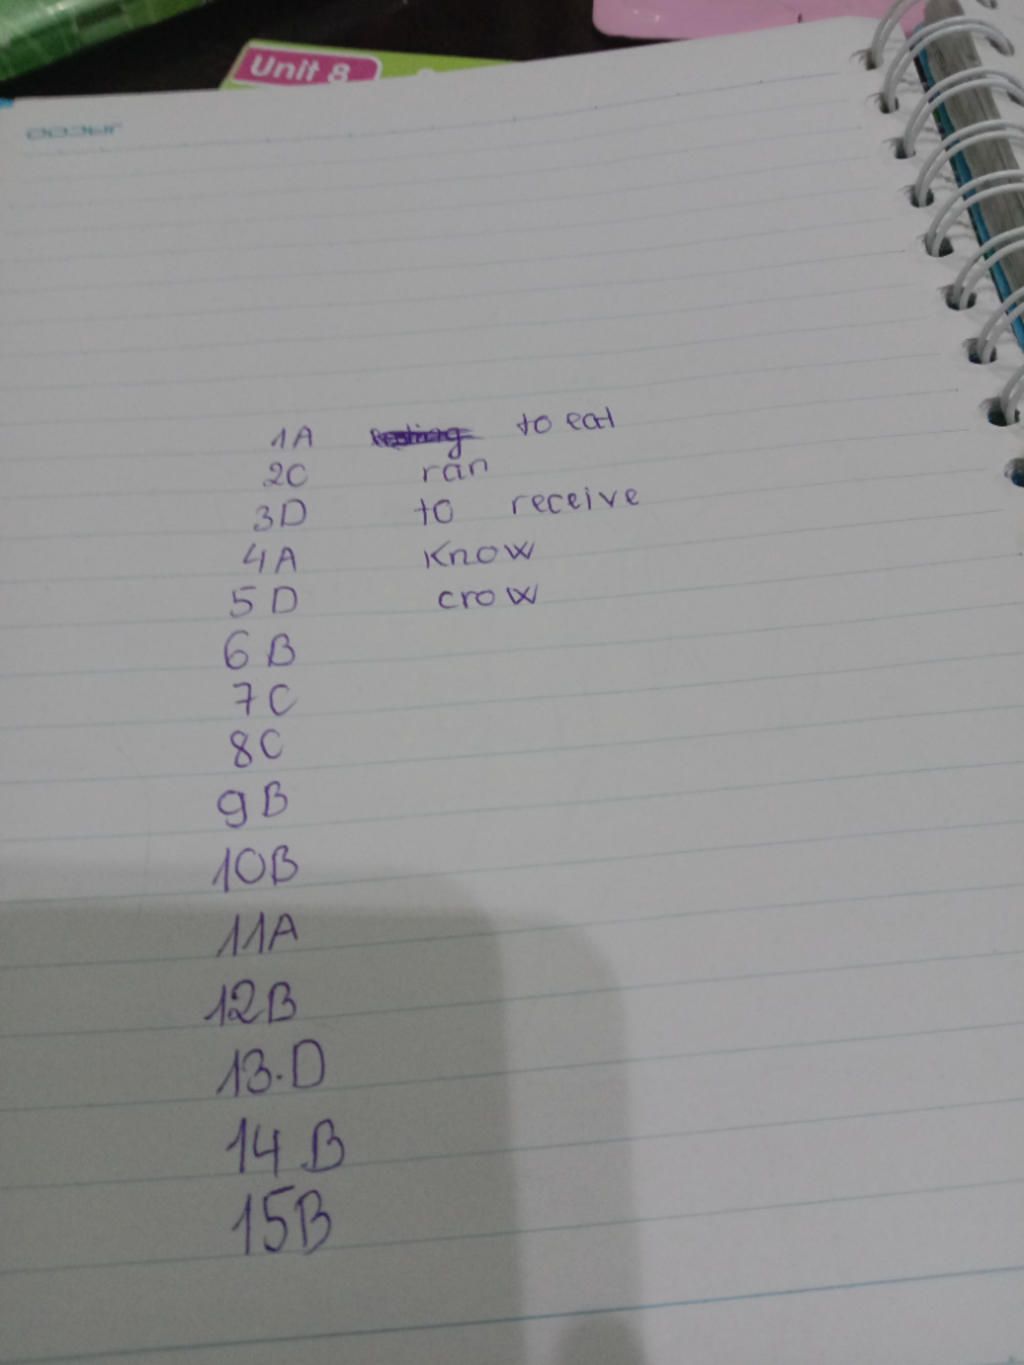 Unit 8
1A to eat
2C ran
3D to receive
4A Know
5D crow
6B
7C
8C
9B
10B
11A
12B
13.D
14 B
15B